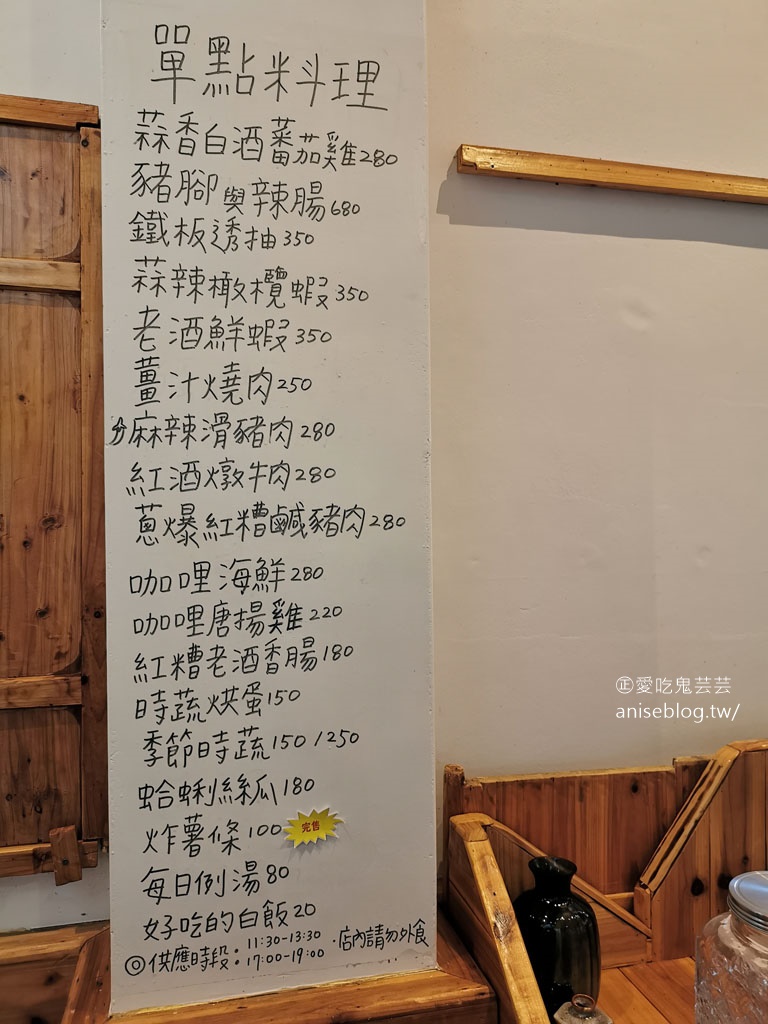 單點料理
蒜香白酒蕃茄雞280
豬腳與辣腸680
鐵板透抽350
蒜辣橄欖蝦350
老酒鮮蝦350
薑汁燒肉250
麻辣滑豬肉280
紅酒燉牛肉280
蔥爆紅糟鹹豬肉280
咖哩海鮮280
咖哩唐揚雞220
紅糟老酒香腸180
時蔬烘蛋150
季節時蔬150/250
蛤蜊絲瓜180
炸薯條100 完售
每日例湯80
好吃的白飯20
◎供應時段：11:30-13:30 17:00-19:00 ·店內請勿外食
㊣愛吃鬼芸芸
aniseblog.tw/